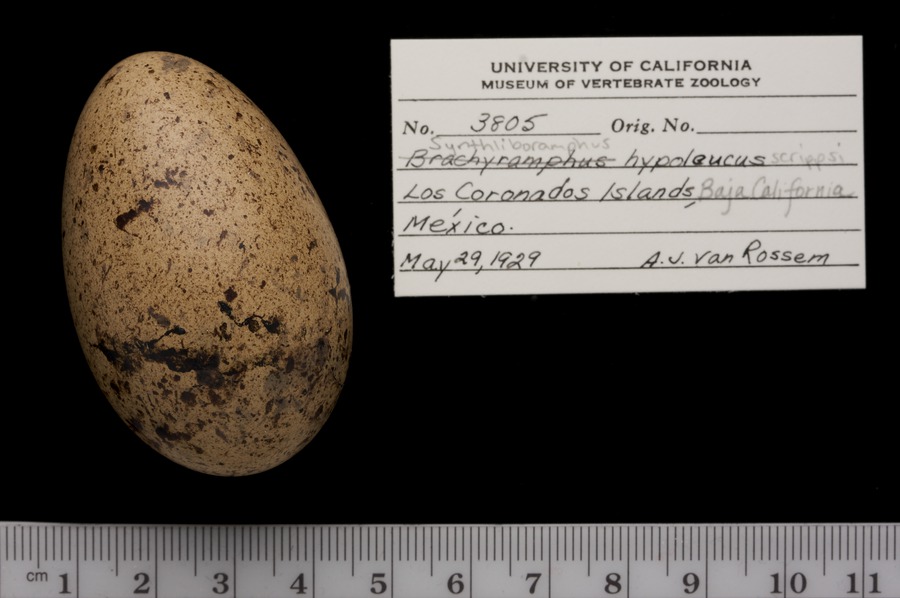 UNIVERSITY OF CALIFORNIA
MUSEUM OF VERTEBRATE ZOOLOGY
No. 3805 Orig. No.
Synthliboramphus
Brachyramphus hypoleucus scrippsi
Los Coronados Islands, Baja California
México.
May 29, 1929 A.J. van Rossem
cm 1 2 3 4 5 6 7 8 9 10 11